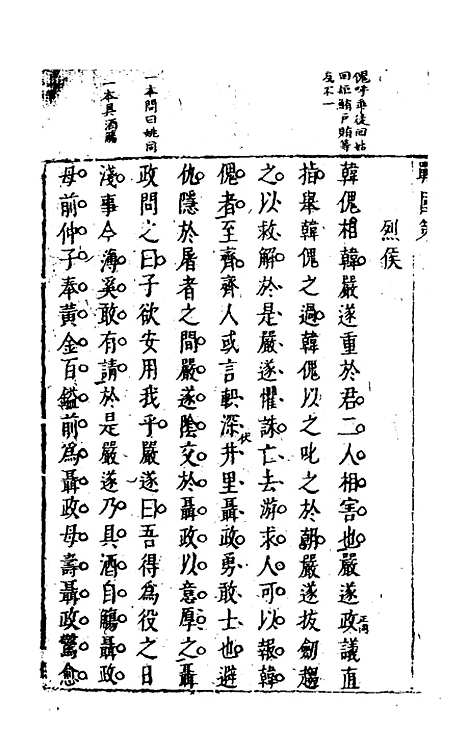 傀呼乖徒回姑
回姫鮪戶賄等
反不一
一本問曰姚同
一本具酒觴
戰國策
烈侯
韓傀相韓嚴遂重於君二人相害也嚴遂政議直
指舉韓傀之過韓傀以之叱之於朝嚴遂拔劍趨
之以救解於是嚴遂懼誅亡去游求人可以報韓
傀者至齊齊人或言軹深井里聶政勇敢士也避
仇隱於屠者之間嚴遂陰交於聶政以意厚之聶
政問之曰子欲安用我乎嚴遂曰吾得為役之日
淺事今海奚敢有請於是嚴遂乃具酒自觴聶政
母前仲子奉黃金百鎰前為聶政母壽聶政驚愈